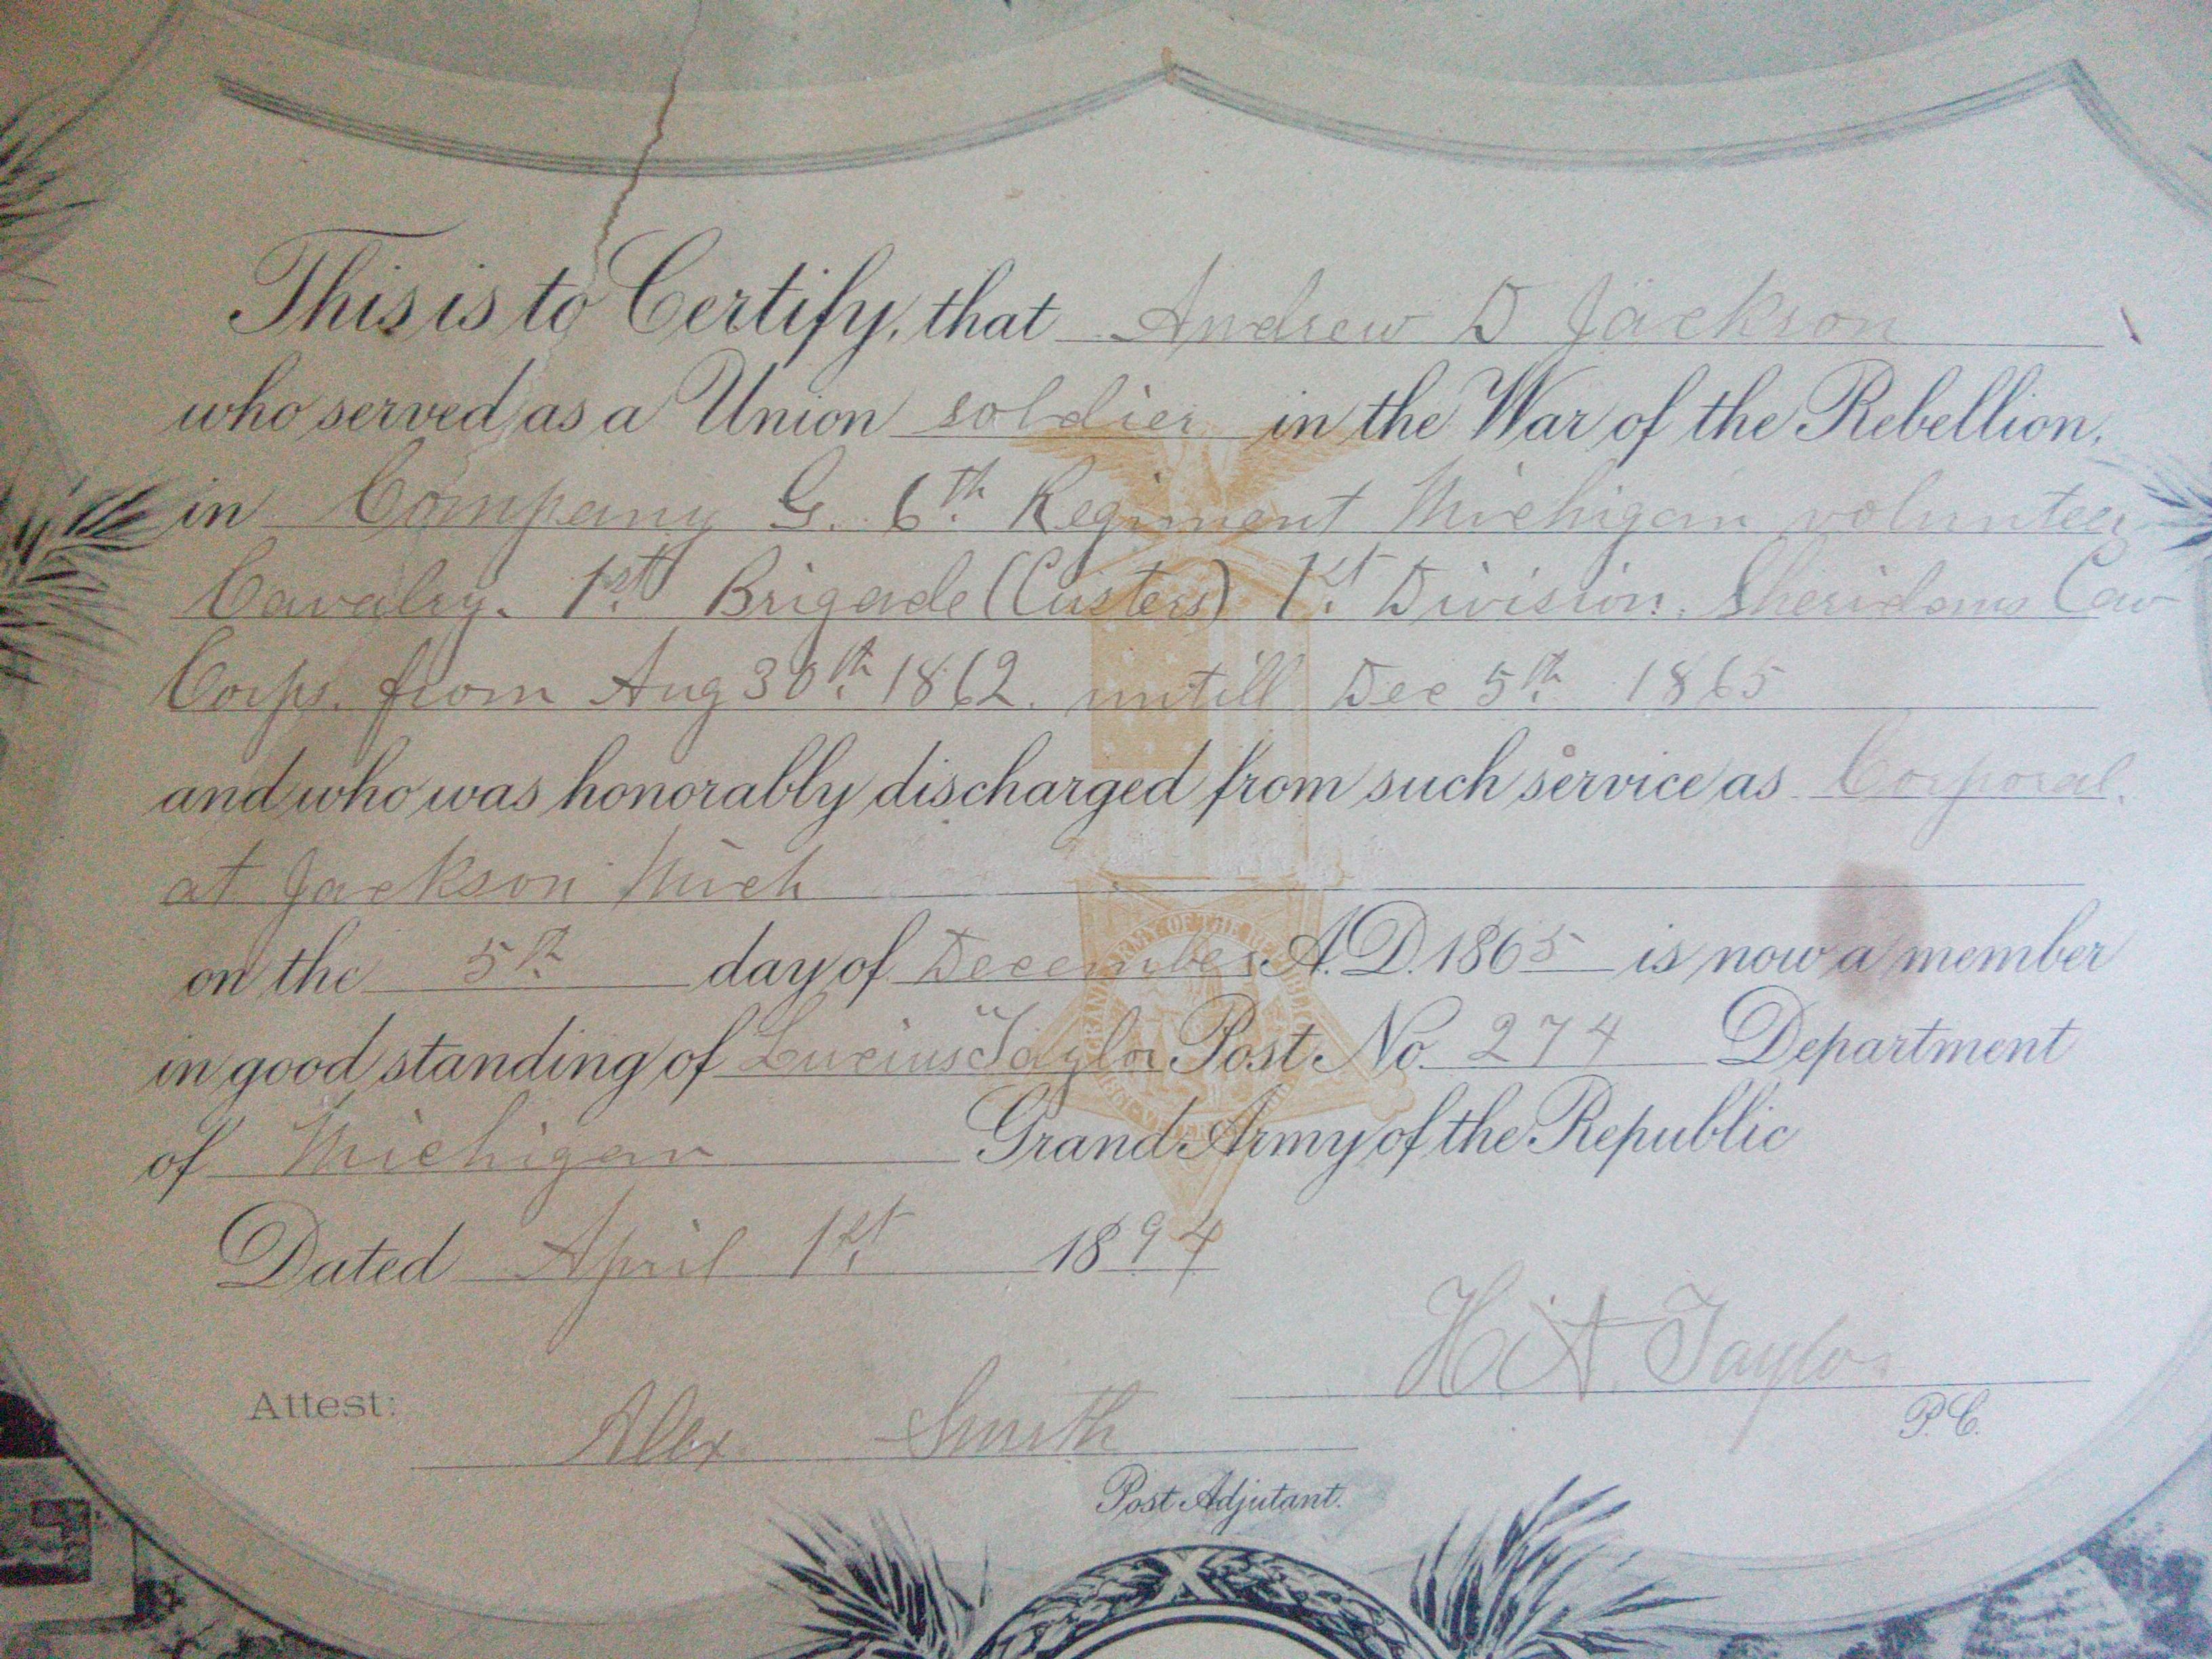 This is to Certify, that Andrew D Jackson
who served as a Union soldier in the War of the Rebellion,
in Company G. 6th Regiment Michigan volunteer
Cavalry. 1st Brigade (Custers) 1st Division. Sheridans Cav
Corps. from Aug 30th 1862. untill Dec 5th 1865
and who was honorably discharged from such service as Corporal.
at Jackson Mich
on the 5th day of December A.D. 1865 is now a member
in good standing of Lucius Taylor Post No. 274 Department
of Michigan Grand Army of the Republic
Dated April 1st 1894
H. A. Taylor
P.C.
Attest: Alex Smith
Post Adjutant.